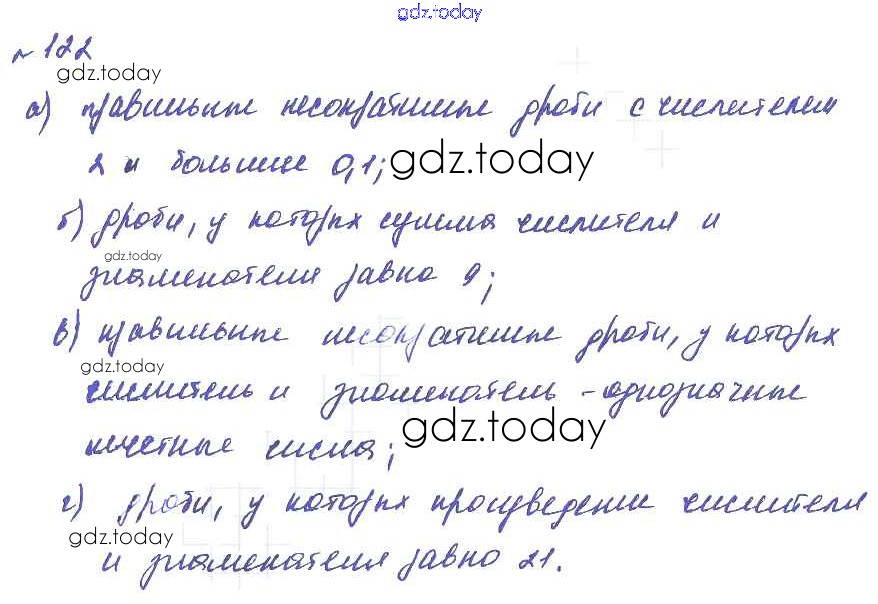 gdz.today
№122
gdz.today
а) правильные несократимые дроби с числителем
2 и большие 0,1; gdz.today
б) дроби, у которых сумма числителя и
gdz.today
знаменателя равно 9;
в) правильные несократимые дроби, у которых
gdz.today
числитель и знаменатель - однозначные
нечетные числа; gdz.today
г) дроби, у которых произведение числителя
gdz.today
и знаменателя равно 21.